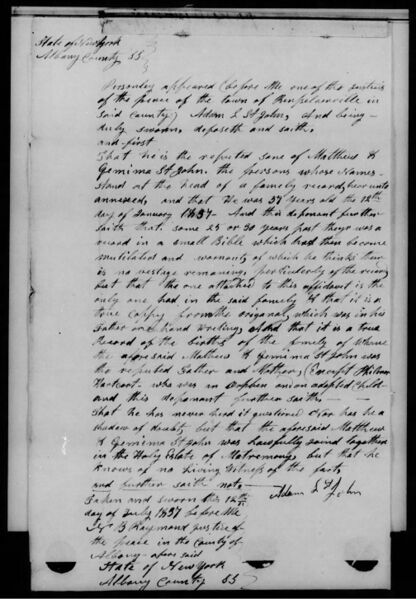 State of New York
Albany County SS
Personly appeared before me one of the justices
of the peace of the town of Renselaerville in
said County Adam L St John, And being
duly sworn, deposeth and saith,
and first
That he is the reputed sone of Matthew &
Gemima St John, the persons whose Names
stand at the head of a family record hear unto
annexed, and that he was 37 years old the 12th
day of January 1837 - And this deponant further
saith that some 25 or 30 years past there was a
record in a small Bible which had then become
mutilated and of which he thinks ther
is no vestage remaning, perticulerly of the record
but that the one attached to this affidavit is the
only one had in the said famely & that it is a
true Coppy from the original, which was in his
Father one hand Writing, And that it is a true
Record of the births of the famely of Whome
the aforesaid Mathew & Gemima St John was
the reputed Father and Mother, (Except
who was an Orphen and an adopted Child
and this deponant further saith
that he has never herd it questioned & or has he a
shadow of doubt, but that the aforesaid Matthew
& Gemima St John was Lawfully joined together
in the Holy State of Matremony, but that he
knows of no Living Witness of the fact
and further saith not
Adam L St John
Taken and sworn this 12th
day of July 1837 before me
B Raymond justice of
the peace in the County of
Albany afore said
State of New York
Albany County SS